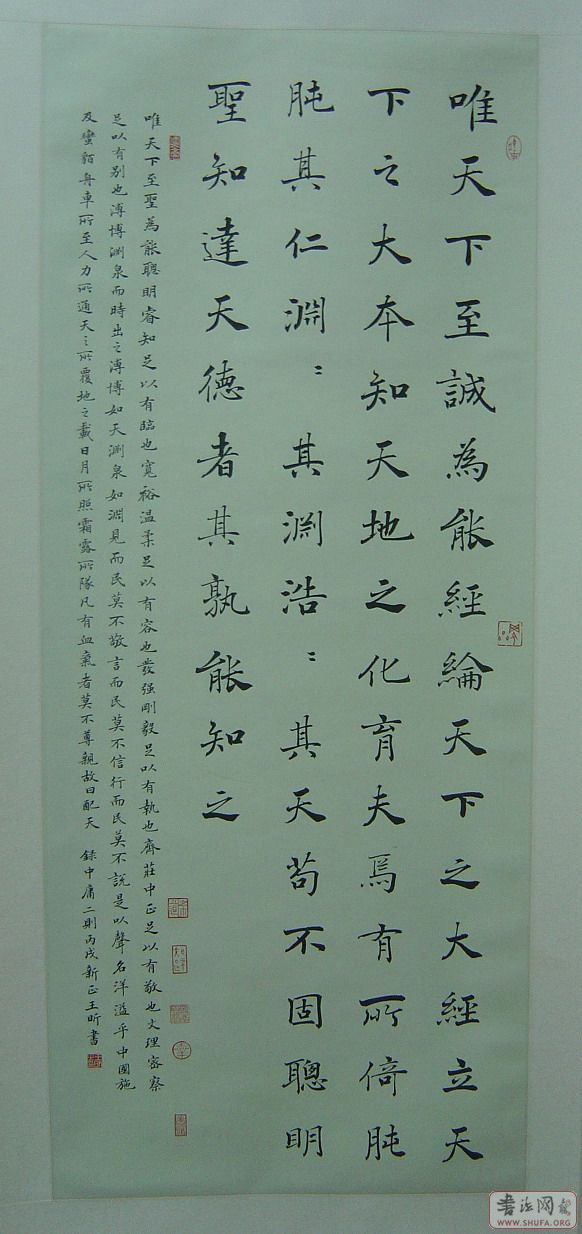 唯天下至誠為能經綸天下之大經立天
下之大本知天地之化育夫焉有所倚肫
肫其仁淵〻其淵浩〻其天苟不固聰明
聖知達天德者其孰能知之
唯天下至聖為能聰明睿知足以有臨也寬裕温柔足以有容也發强剛毅足以有執也齊莊中正足以有敬也文理密察
足以有别也溥博淵泉而時出之溥博如天淵泉如淵見而民莫不敬言而民莫不信行而民莫不説是以聲名洋溢乎中國施
及蠻貊舟車所至人力所通天之所覆地之載日月所照霜露所隊凡有血氣者莫不尊親故曰配天 録中庸二則丙戌新正王昕書
书法网
WWW.SHUFA.ORG